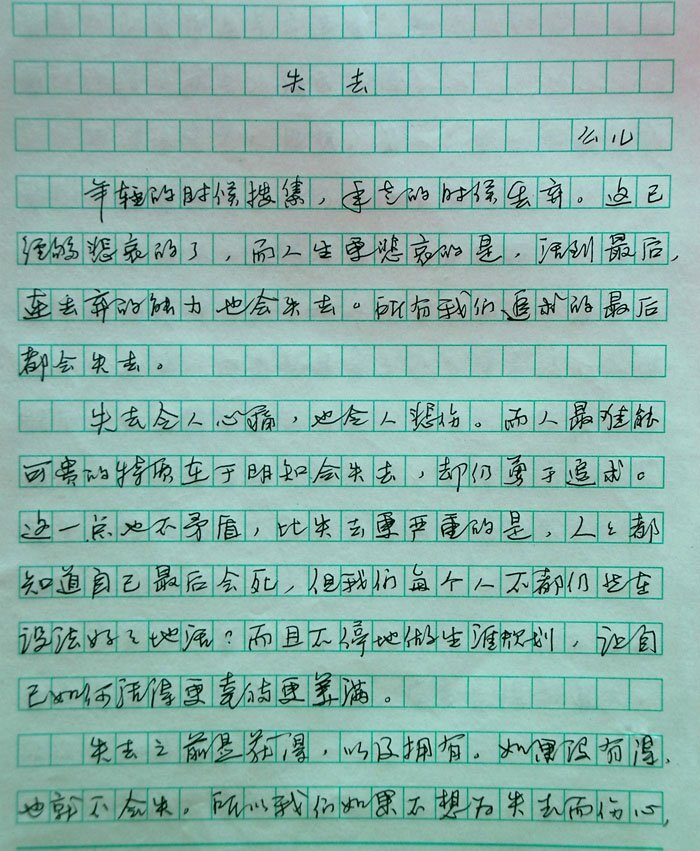 失去
么儿
年轻的时候搜集，年老的时候丢弃。这已
经够悲哀的了，而人生更悲哀的是，活到最后，
连丢弃的能力也会失去。所有我们追求的最后
都会失去。
失去令人心痛，也令人悲伤。而人最难能
可贵的特质在于明知会失去，却仍勇于追求。
这一点也不矛盾，比失去更严重的是，人人都
知道自己最后会死，但我们每个人不都仍然在
设法好好地活？而且不停地做生涯规划，让自
己如何活得更亮丽更美满。
失去之前是获得，以及拥有。如果没有得，
也就不会失。所以我们如果不想为失去而伤心，